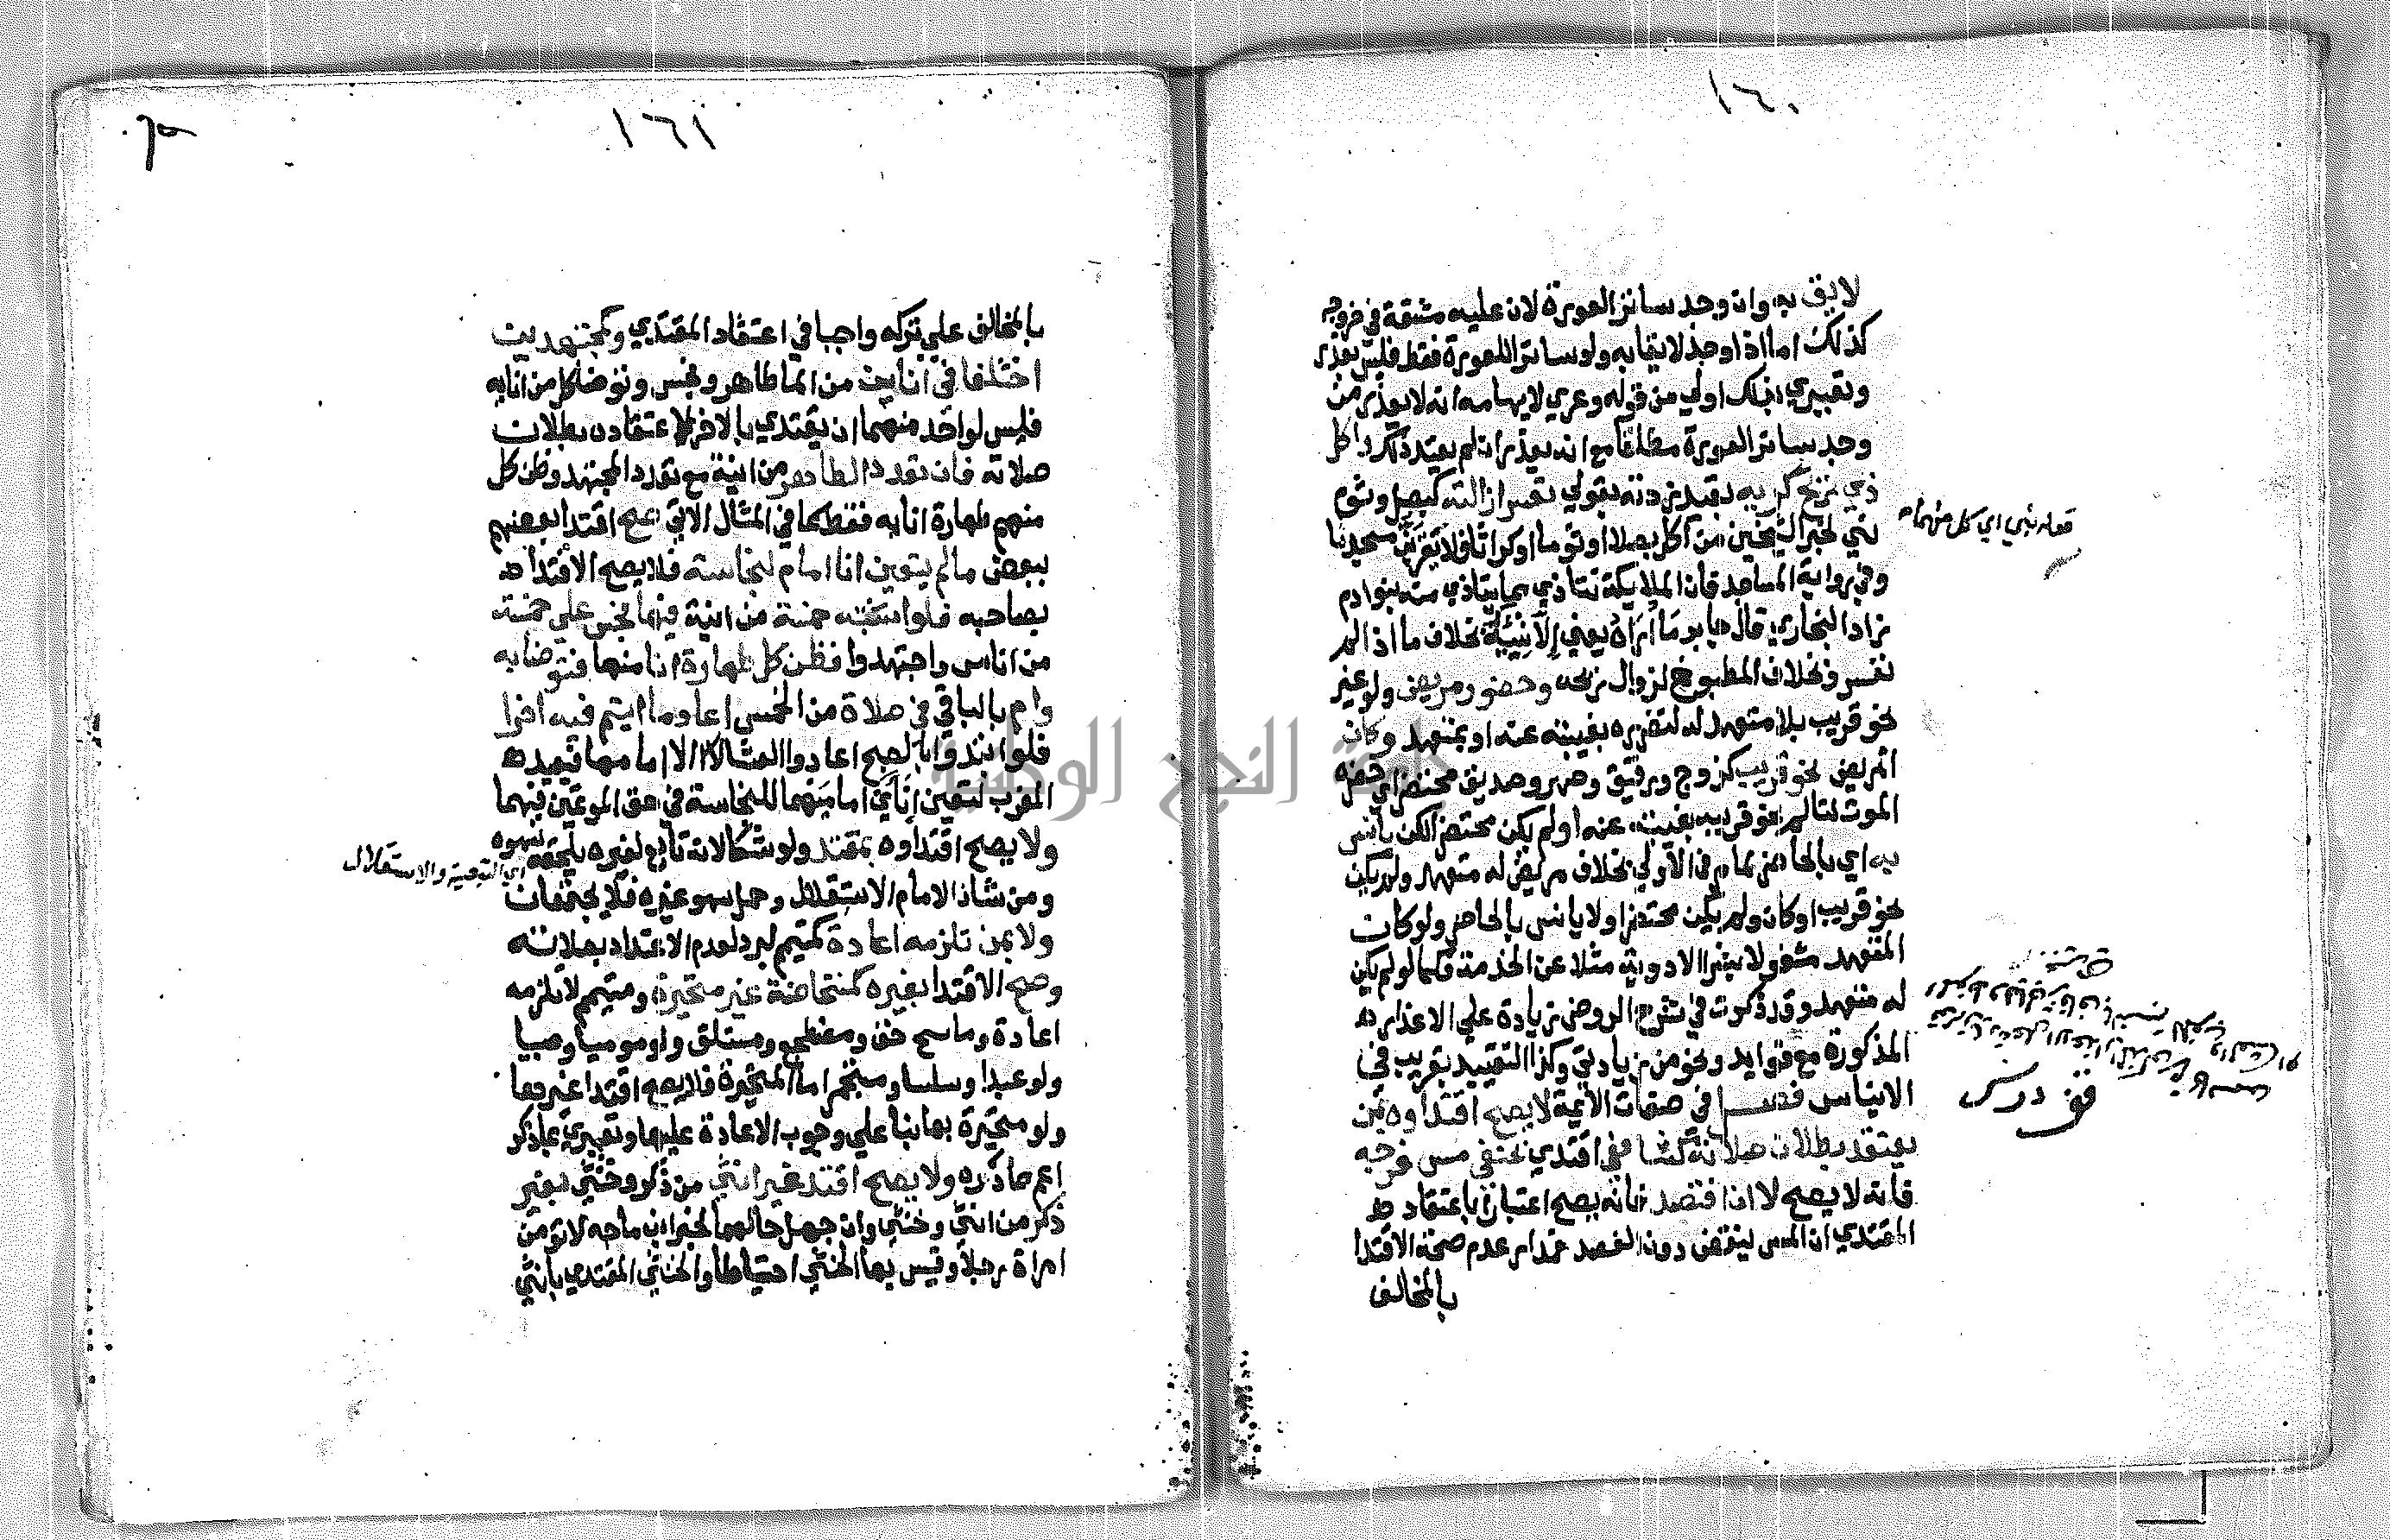 ١٦٠
لايق به وان وجد ساتر العورة لان عليه مشقة في خروجه
كذلك اما اذا وجد لايقا به ولو ساتر العورة فقط فليس بعذر
وتعبيري بذلك اولي من قوله وعري لايهامه انه لا يعذر من
وجد ساتر العورة مطلقا مع انه يعذر ان لم يعتد ذلك واكل
ذي ريح كريه بقيد زدته بقولي تعسر ازالته كبصل وثوم
ني لخبر الشيخين من اكل بصلا او ثوما او كراثا فلا يقربن مسجدنا
وفي رواية المساجد فان الملايكة تتاذي مما يتاذي منه بنوا ادم
زاد البخاري قال جابر ما اراه يعني الا نيئه بخلاف ما اذا لم
تعسر وبخلاف المطبوخ لزوال ريحه وحضور مريض ولو غير
نحو قريب بلا متعهد له لتضرره بغيبته عنه او بمتعهد وكان
المريض نحو قريب كزوج ورقيق وصهر وصديق محتضر اي حضره
الموت لتالم نحو قريبه بغيبته عنه او لم يكن محتضر الكن يانس
به اي بالحاضر لما مر في الاولي بخلاف مريض له متعهد ولم يكن
نحو قريب او كان ولم يكن محتضرا ولا يانس بالحاضر ولو كان
المتعهد مشغولا بشرا الادوية مثلا عن الخدمة فكما لو لم يكن
له متعهد وقد ذكرت في شرح الروض زيادة علي الاعذار
المذكورة مع فوايد ونحو من زيادتي وكذا التقييد بقريب في
الايناس فصل في صفات الايمة لا يصح اقتداوه بمن
يعتقد بطلان صلاته كشافعي اقتدي بحنفي مس فرجه
فانه لا يصح لا ان افتصد فانه يصح اعتبارا باعتقاد
المقتدي ان المس ينقض دون الفصد فمدار عدم صحة الاقتدا
بالمخالف
قوله نئي اي كل منهما
قف درس
١٦١
بالمخالف علي تركه واجبا في اعتقاد المقتدي وكمجتهدين
اختلفا في اناين من الما طاهر ونجس وتوضا كل من انايه
فليس لواحد منهما ان يقتدي بالاخر لاعتقاده بطلان
صلاته فان تعدد الطاهر من انية مع تعدد المجتهد وظن كل
منهم طهارة انايه فقط كما في المثال الاتي صح اقتدا بعضهم
ببعض ما لم يتعين انا امام لنجاسة فلا يصح الاقتدا
بصاحبه فلو اشتبه خمسة من انية فيها نجس علي خمسة
من اناس واجتهدوا فظن كل طهارة انا منها فتوضا به
وام بالباقي في صلاة من الخمس اعاد ما ايتم فيه اخرا
فلو ابتدوا بالصبح اعادوا العشا الا امامها فيعيد
المغرب لتعين اناي اماميهما للنجاسة في حق الموتمين فيهما
ولا يصح اقتداوه بمقتد ولو شكا لانه تابع لغيره يلحقه سهوه
ومن شان الامام الاستقلال وحمل سهو غيره فلا يجتمعان
ولا بمن تلزمه اعادة كمتيمم لبرد لعدم الاعتداد بصلاته
وصح الاقتدا بغيره كمستحاضة غير متحيرة ومتيمم لا تلزمه
اعادة وماسح خف ومضطجع ومستلق ولو موميا وصبيا
ولو عبدا وسلسا ومستجمر اما المتحيرة فلا يصح اقتدا غيرها
ولو متحيرة بها بنا علي وجوب الاعادة عليها وتعبيري بما ذكر
اعم مما ذكره ولا يصح اقتدا غير انثي من ذكر وخنثي بغير
ذكر من انثي وخنثي وان جهل حالهما لخبر ابن ماجه لا تؤمن
امراة رجلا وقيس بها الخنثي احتياطا والخنثي المقتدي بانثي
اي التبعية والاستقلال